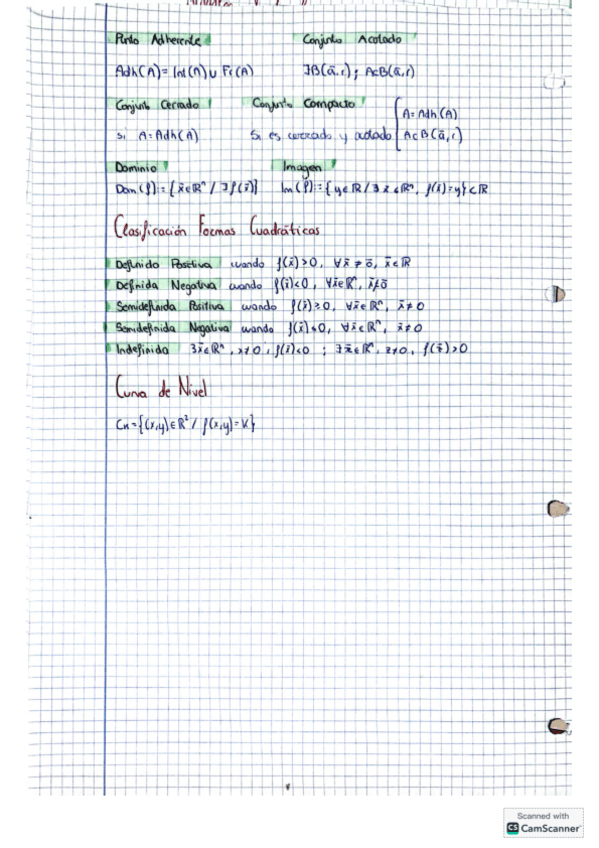 Punto Adherente Conjunto Acotado
Adh(A) = Int(A) ∪ Fr(A) ∃B(ā,r) ; A⊂B(ā,r)
Conjunto Cerrado Conjunto Compacto { A = Adh(A)
si A = Adh(A) Si es cerrado y acotado { A⊂B(ā,r)
Dominio Imagen
Dom(f) := {x̄∈ℝⁿ / ∃f(x̄)} Im(f) := {y∈ℝ / ∃x̄∈ℝⁿ, f(x̄)=y}⊂ℝ
Clasificación Formas Cuadráticas
Definida Positiva cuando f(x̄)>0, ∀x̄≠ō, x̄∈ℝ
Definida Negativa cuando f(x̄)<0, ∀x̄∈ℝⁿ, x̄≠ō
Semidefinida Positiva cuando f(x̄)≥0, ∀x̄∈ℝⁿ, x̄≠0
Semidefinida Negativa cuando f(x̄)≤0, ∀x̄∈ℝⁿ, x̄≠0
Indefinida ∃x̄∈ℝⁿ, x≠0, f(x̄)<0 ; ∃z̄∈ℝⁿ, z≠0, f(z̄)>0
Curva de Nivel
Cκ = {(x,y)∈ℝ² / f(x,y)=K}
Scanned with
CS CamScanner